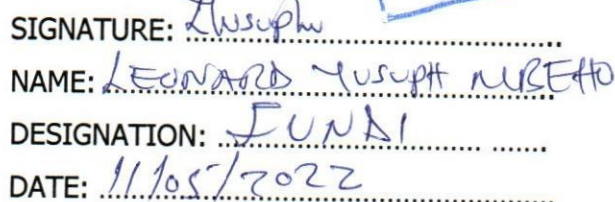 SIGNATURE: LYusuph
NAME: LEONARD YUSUPH MBEHO
DESIGNATION: FUNDI
DATE: 11/05/2022